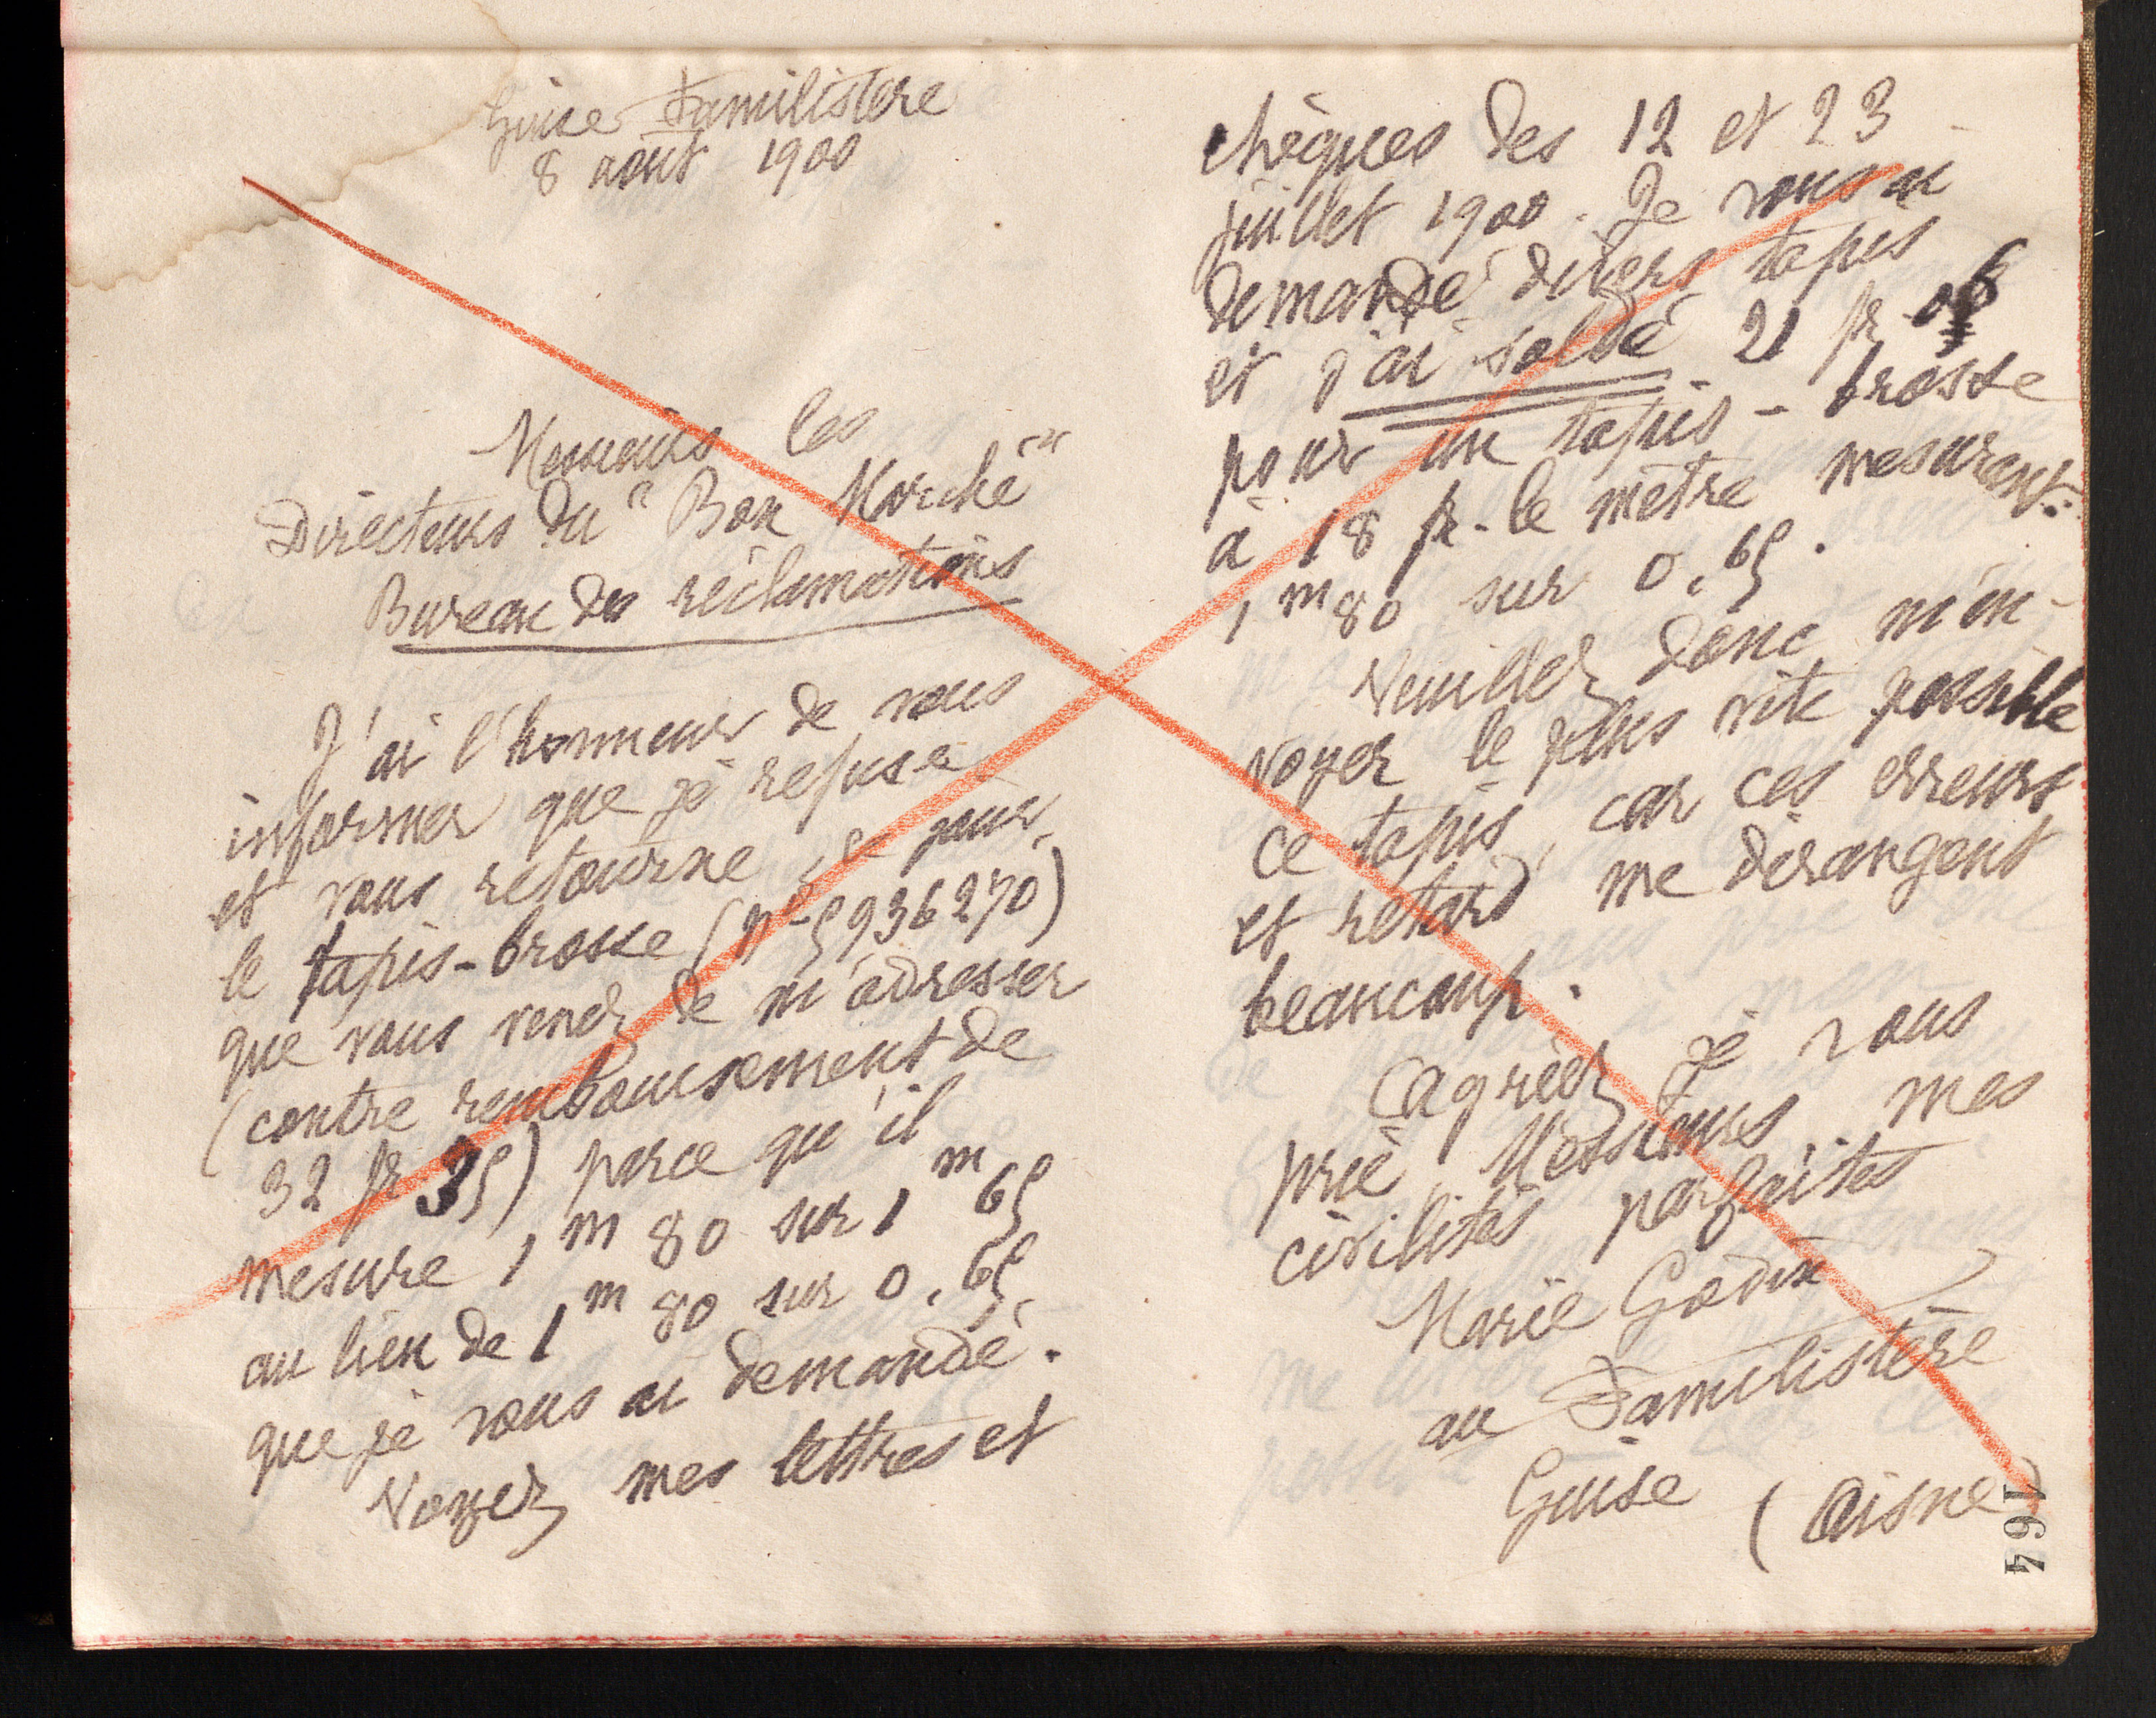 Guise Familistère
8 août 1900
Messieurs les
Directeurs du "Bon Marché"
Bureau des réclamations
J'ai l'honneur de vous
informer que je refuse
et vous retourne ce jour,
le tapis-brosse (nº 5936270)
que vous venez de m'adresser
(contre remboursement de
32 fr 35) parce qu'il
mesure 1 m 80 sur 1 m 65
au lieu de 1 m 80 sur 0,65
que je vous ai demandé.
Voyez mes lettres et
chèques des 12 et 23
juillet 1900. Je vous ai
demandé divers tapis
et j'ai soldé 21 fr 06
pour un tapis-brosse
à 18 fr. le mètre mesurant:
1 m 80 sur 0,65.
Veuillez donc m'en-
voyer le plus vite possible
ce tapis, car ces erreurs
et retard me dérangent
beaucoup.
Agréez je vous
prie, Messieurs, mes
civilités parfaites
Marie Godin
au Familistère
Guise (Aisne)
164